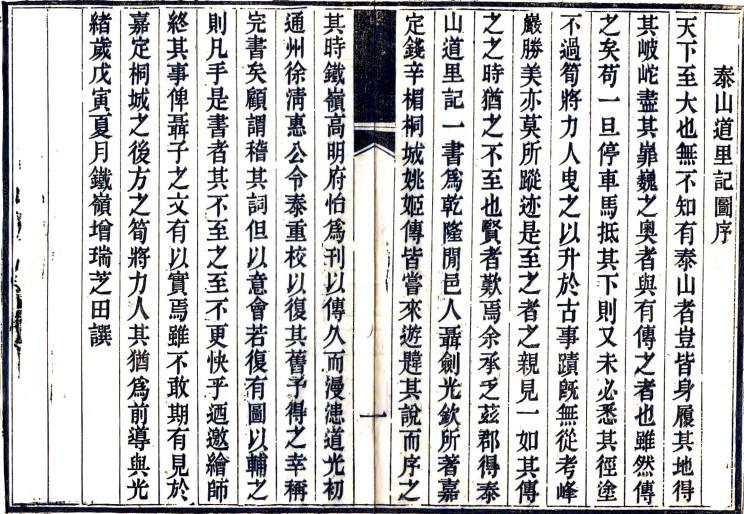 泰山道里記圖序
天下至大也無不知有泰山者豈皆身履其地得
其岥岮盡其巃巍之奧者與有傳之者也雖然傳
之矣苟一旦停車馬抵其下則又未必悉其徑塗
不過筍將力人曳之以升於古事蹟既無從考峰
巖勝美亦莫所蹤迹是至之者之親見一如其傳
之之時猶之不至也賢者歎焉余承乏茲郡得泰
山道里記一書為乾隆閒邑人聶劍光欽所著嘉
定錢辛楣桐城姚姬傳皆嘗來遊韙其說而序之
其時鐵嶺高明府怡為刊以傳久而漫漶道光初
通州徐清惠公令泰重校以復其舊予得之幸稱
完書矣顧謂稽其詞但以意會若復有圖以輔之
則凡手是書者其不至之至不更快乎迺邀繪師
終其事俾聶子之文有以實焉雖不敢期有見於
嘉定桐城之後方之筍將力人其猶為前導與光
緒歲戊寅夏月鐵嶺增瑞芝田譔
一